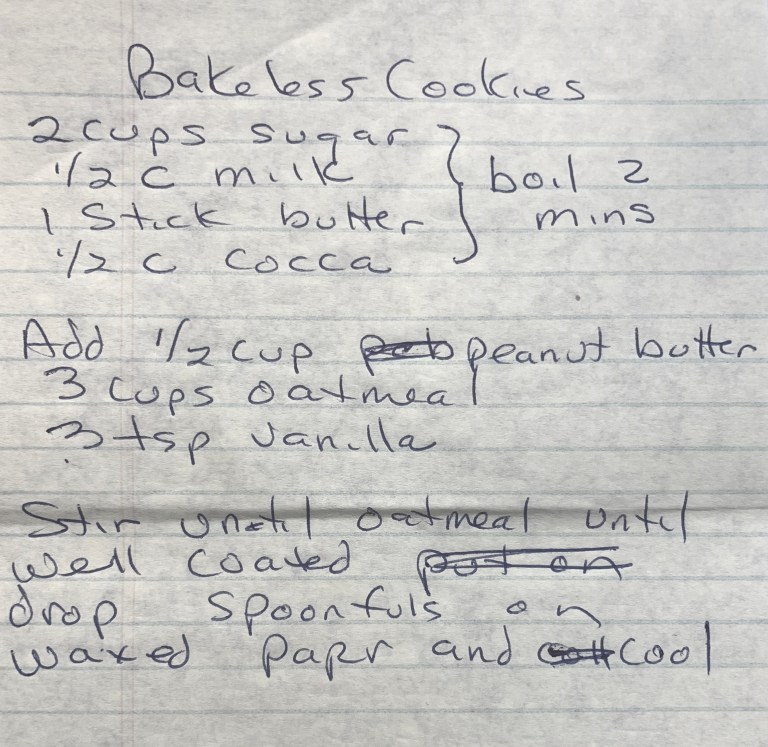 Bakeless Cookies
2 cups sugar
1/2 c milk
1 Stick butter
1/2 c cocca
boil 2
mins
Add 1/2 cup peanut butter
3 cups oatmeal
3 tsp vanilla
Stir until oatmeal until
well coated put on
drop spoonfuls on
waxed papr and cool